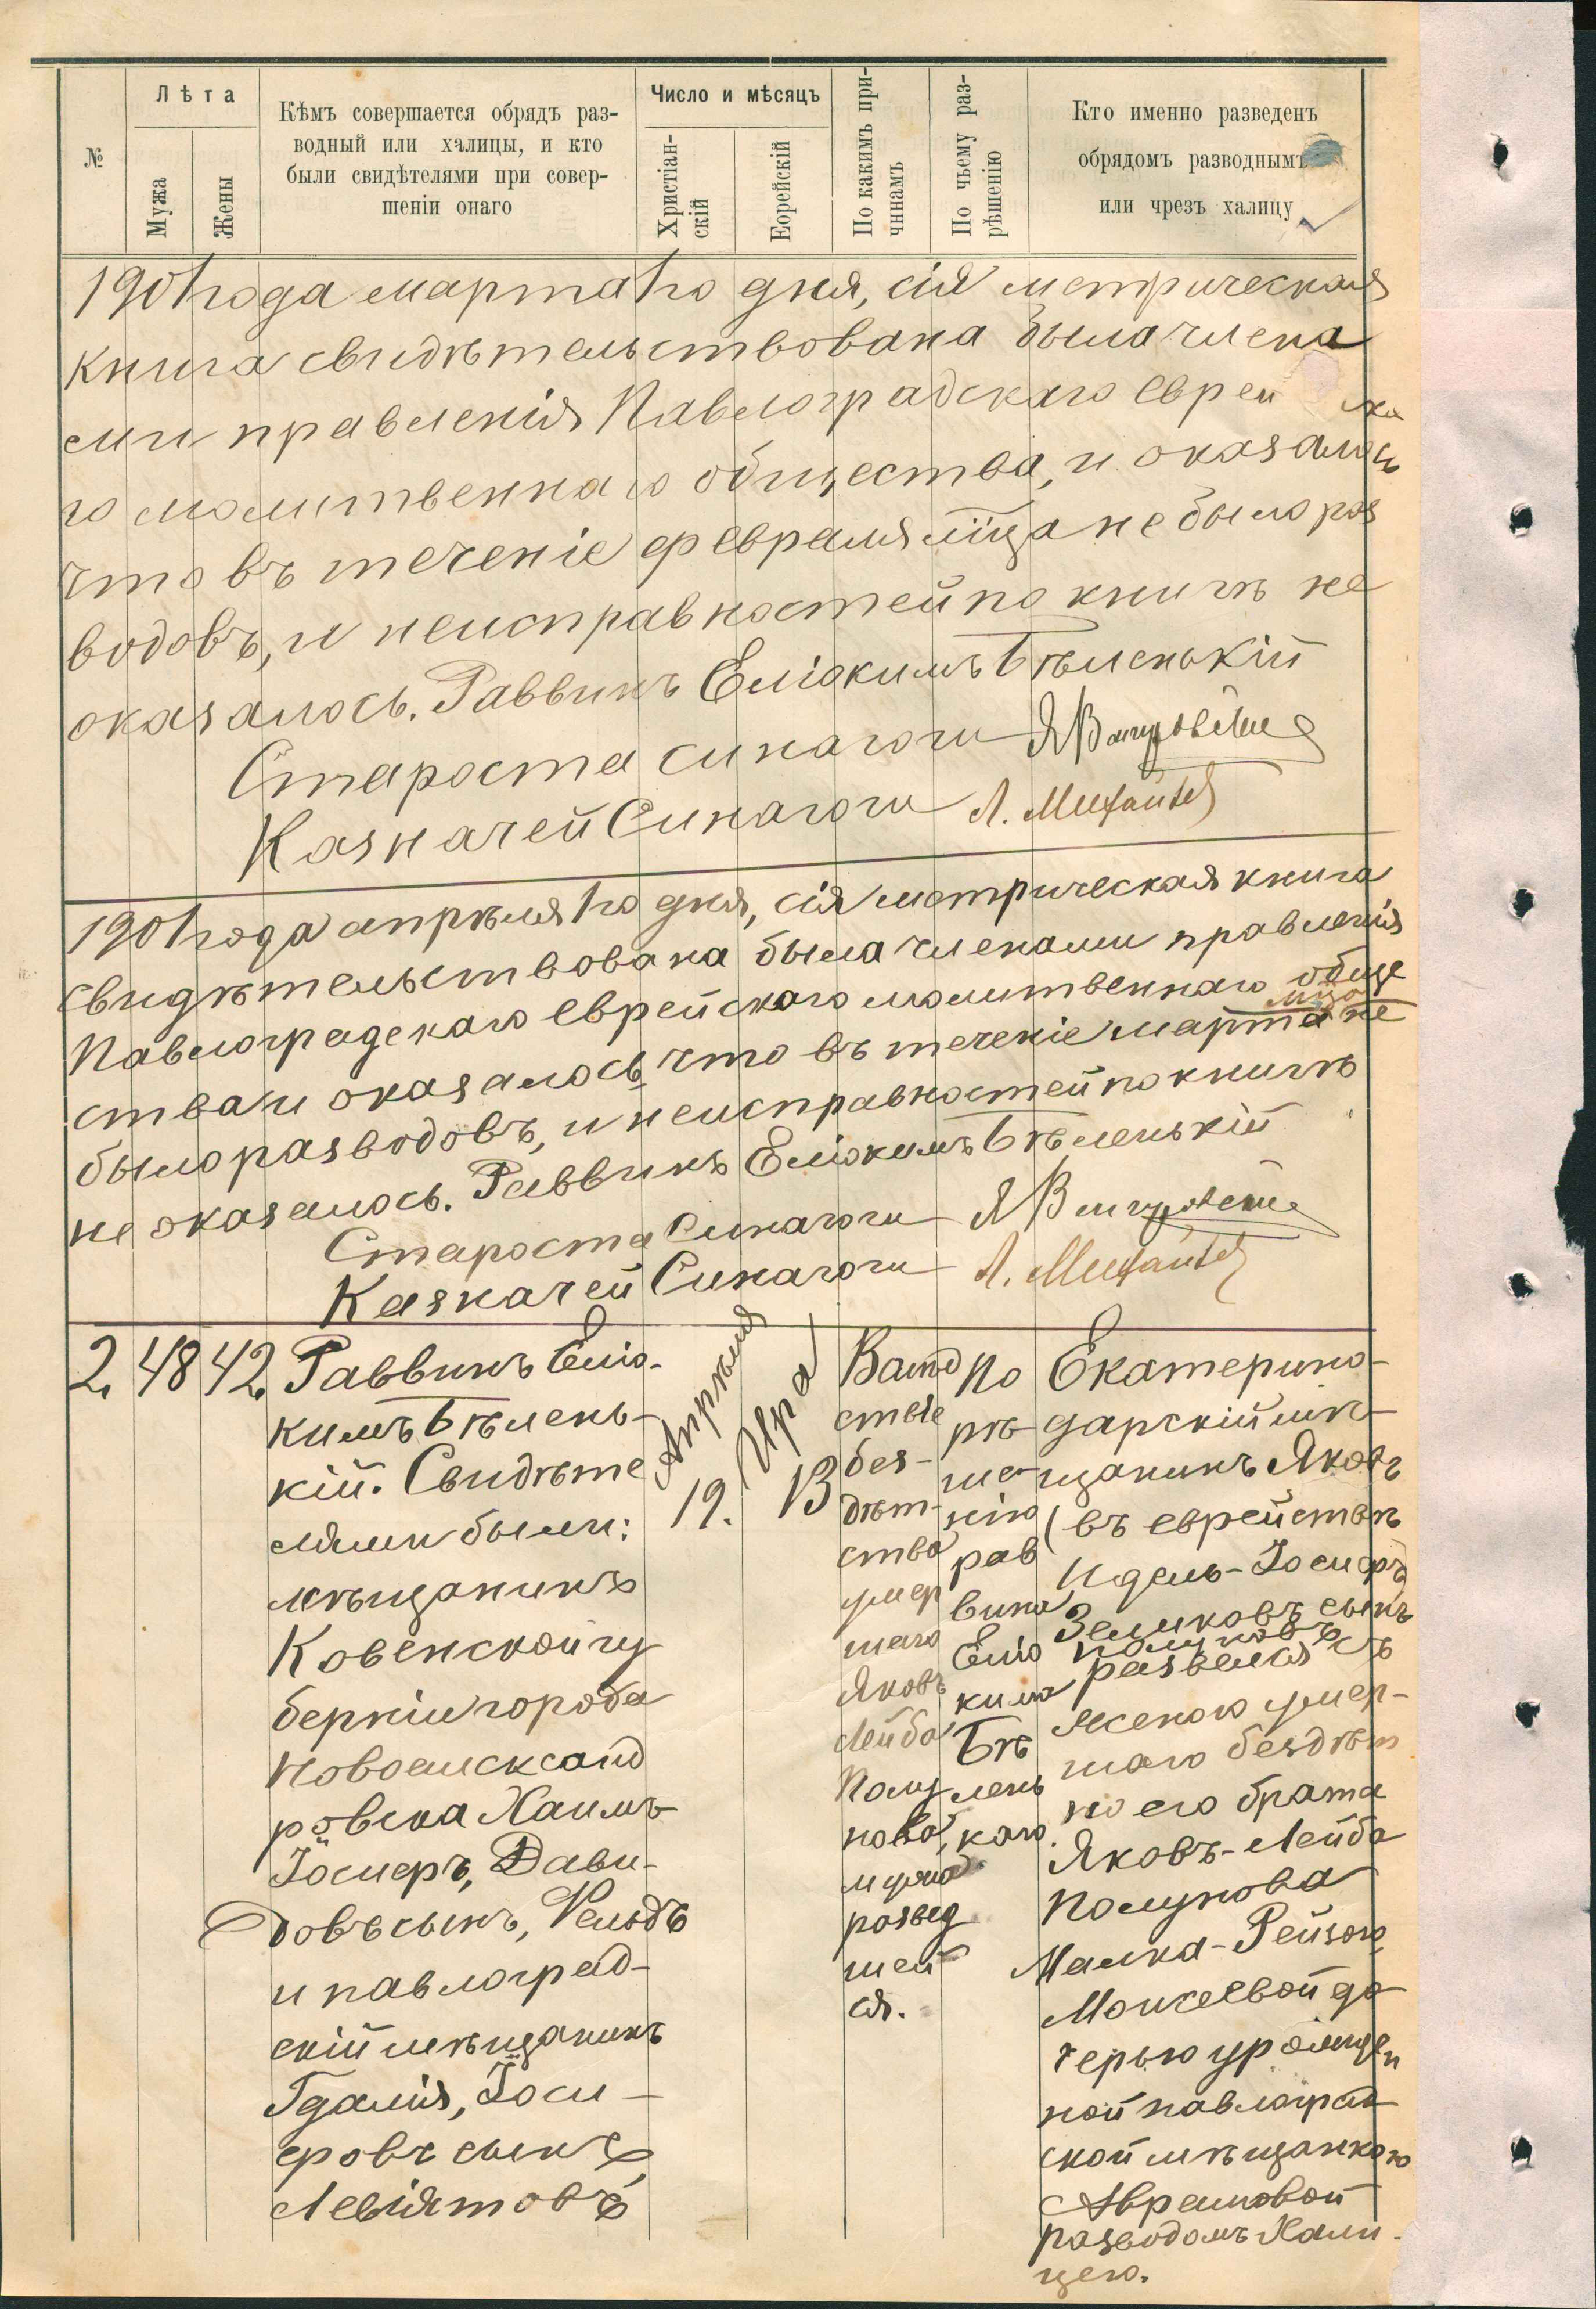 №
Лѣта
Мужа
Жены
Кѣмъ совершается обрядъ раз-
водный или халицы, и кто
были свидѣтелями при совер-
шеніи онаго
Число и мѣсяцъ
Христіан-
скій
Еорейскій
По какимъ при-
чинамъ
По чьему раз-
рѣшенію
Кто именно разведенъ
обрядомъ разводнымъ
или чрезъ халицу
1901 года марта 1го дня, сія метрическая
книга свидѣтельствована была члена
ми правленія Павлоградскаго еврейска
го молитвеннаго общества, и оказалось
что въ теченіе февраля мца не было раз
водовъ, и неисправностей по книгѣ не
оказалось. Раввинъ Еліокимъ Бѣленькій
Староста синагоги
Казначей Синагоги Л.
1901 года апрѣля 1го дня, сія метрическая книга
свидѣтельствована была членами правленія
Павлоградскаго еврейскаго молитвеннаго обще
ства и оказалось, что въ теченіе марта мца не
было разводовъ, и неисправностей по книгѣ
не оказалось. Раввинъ Еліокимъ Бѣленькій
Староста Синагоги
Казначей Синагоги Л.
2. 48 42.
Раввинъ Еліо-
кимъ Бѣлень-
кій. Свидѣте
лями были:
мѣщанинъ
Ковенской гу
берніи города
Новоалександ
ровска Хаимъ
Іосиеръ, Дави-
довъ сынъ, Фельдъ
и павлоград-
скій мѣщанинъ
Гдалія, Іоси-
фовъ сынъ,
Левіятовъ
Апрѣля
19.
Ира
13
Вслѣд
ствіе
без-
дѣт-
ство
умер
шаго
Яковъ
Лейба
Полу
нова,
мужа
развед
шей
ся.
По
рѣ-
ше-
нію
рав
вина
Еліо
кима
Бѣ
лень
каго.
Екатерино-
дарскій мѣ-
щанинъ Яковъ
(въ еврействѣ
Идель-Іосифъ)
Зеликовъ сынъ
Полуновъ
развелся съ
женою умер-
шаго бездѣт
но его брата
Яковъ-Лейба
Полунова
Малка-Рейзою,
Моисеевой до
черью урожден
ной павлоград
ской мѣщанкою
Аврамовой
разводомъ Хали-
цею.